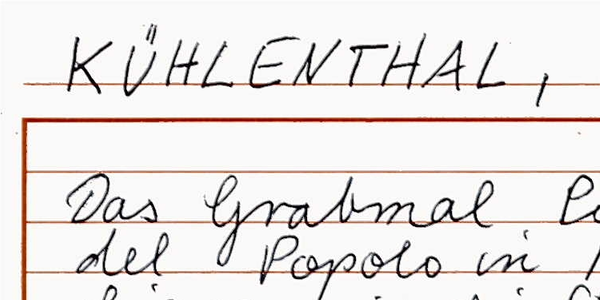 KÜHLENTHAL,
Das Grabmal
del Popolo in